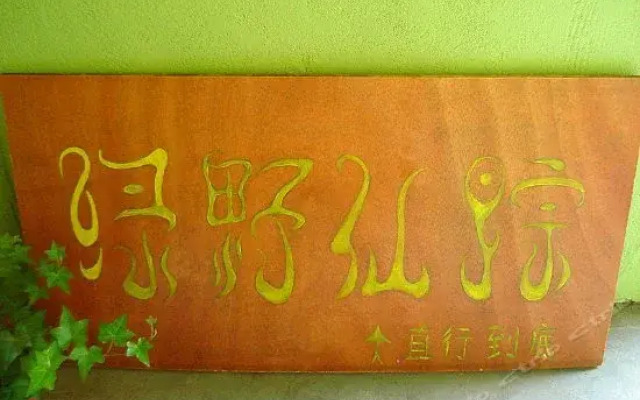 绿野仙踪
直行到底